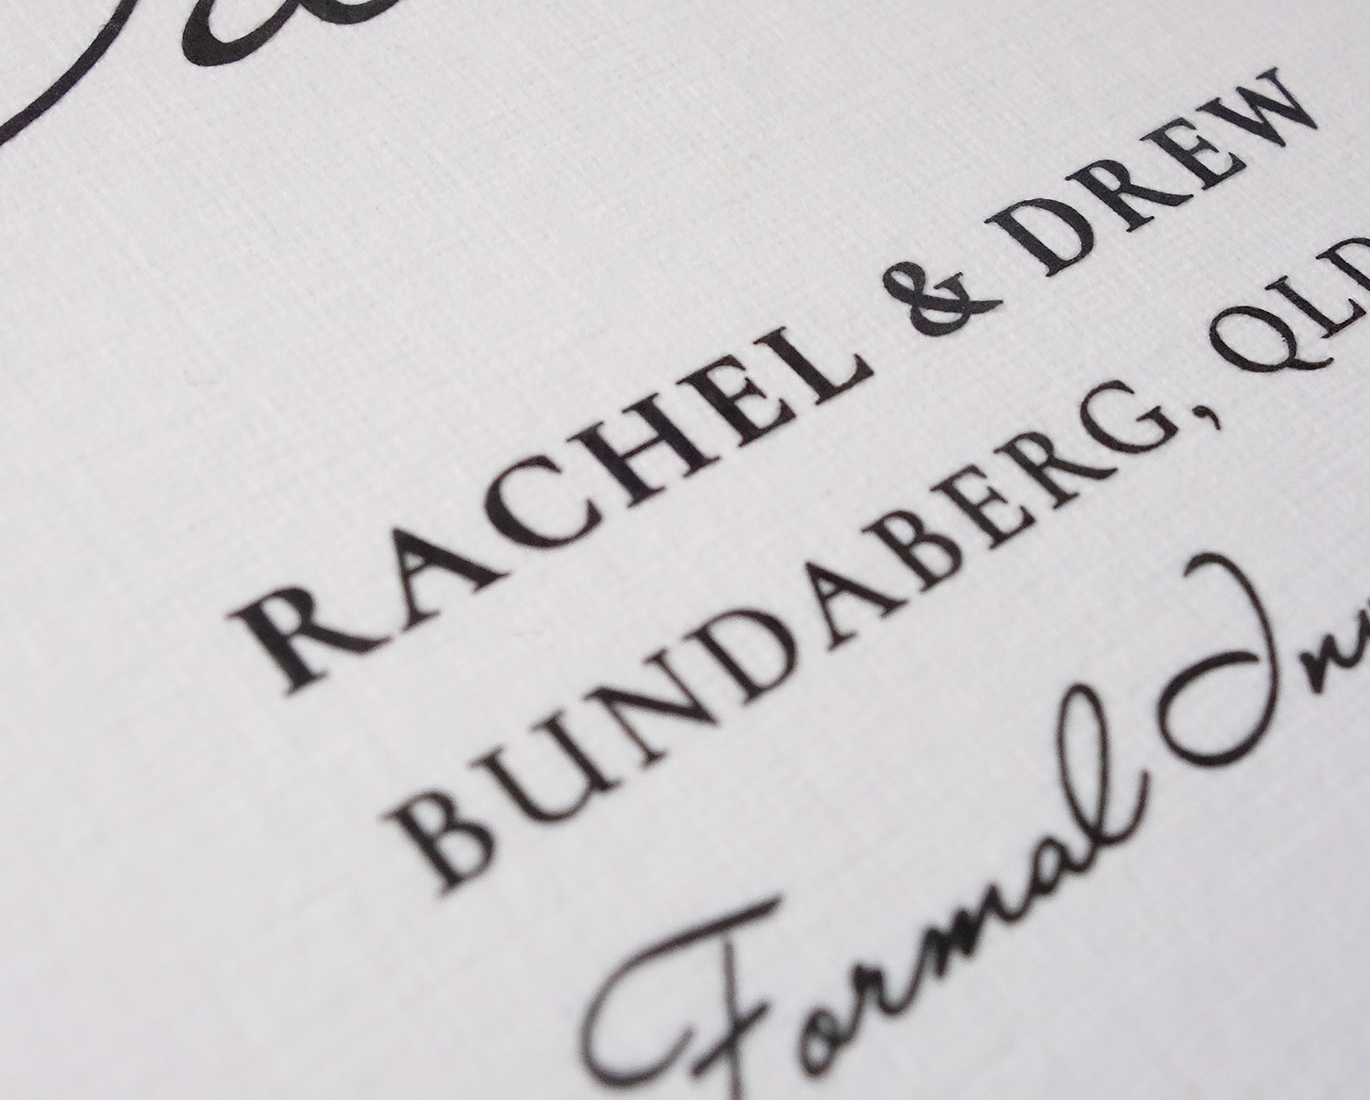 RACHEL & DREW
BUNDABERG, QLD
Formal